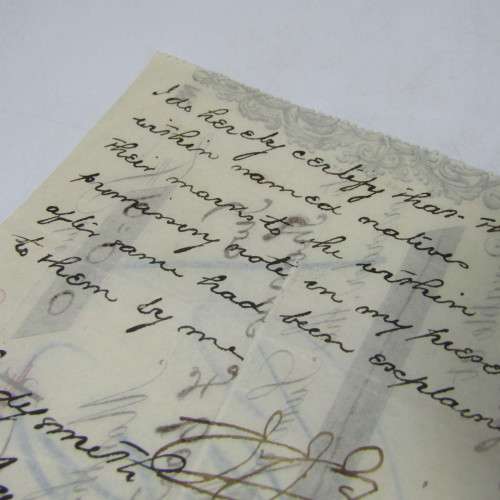 I do hereby certify that th
within named natives
their marks to the within
promissory note in my prese
after same had been explain
to them by me
dysmith